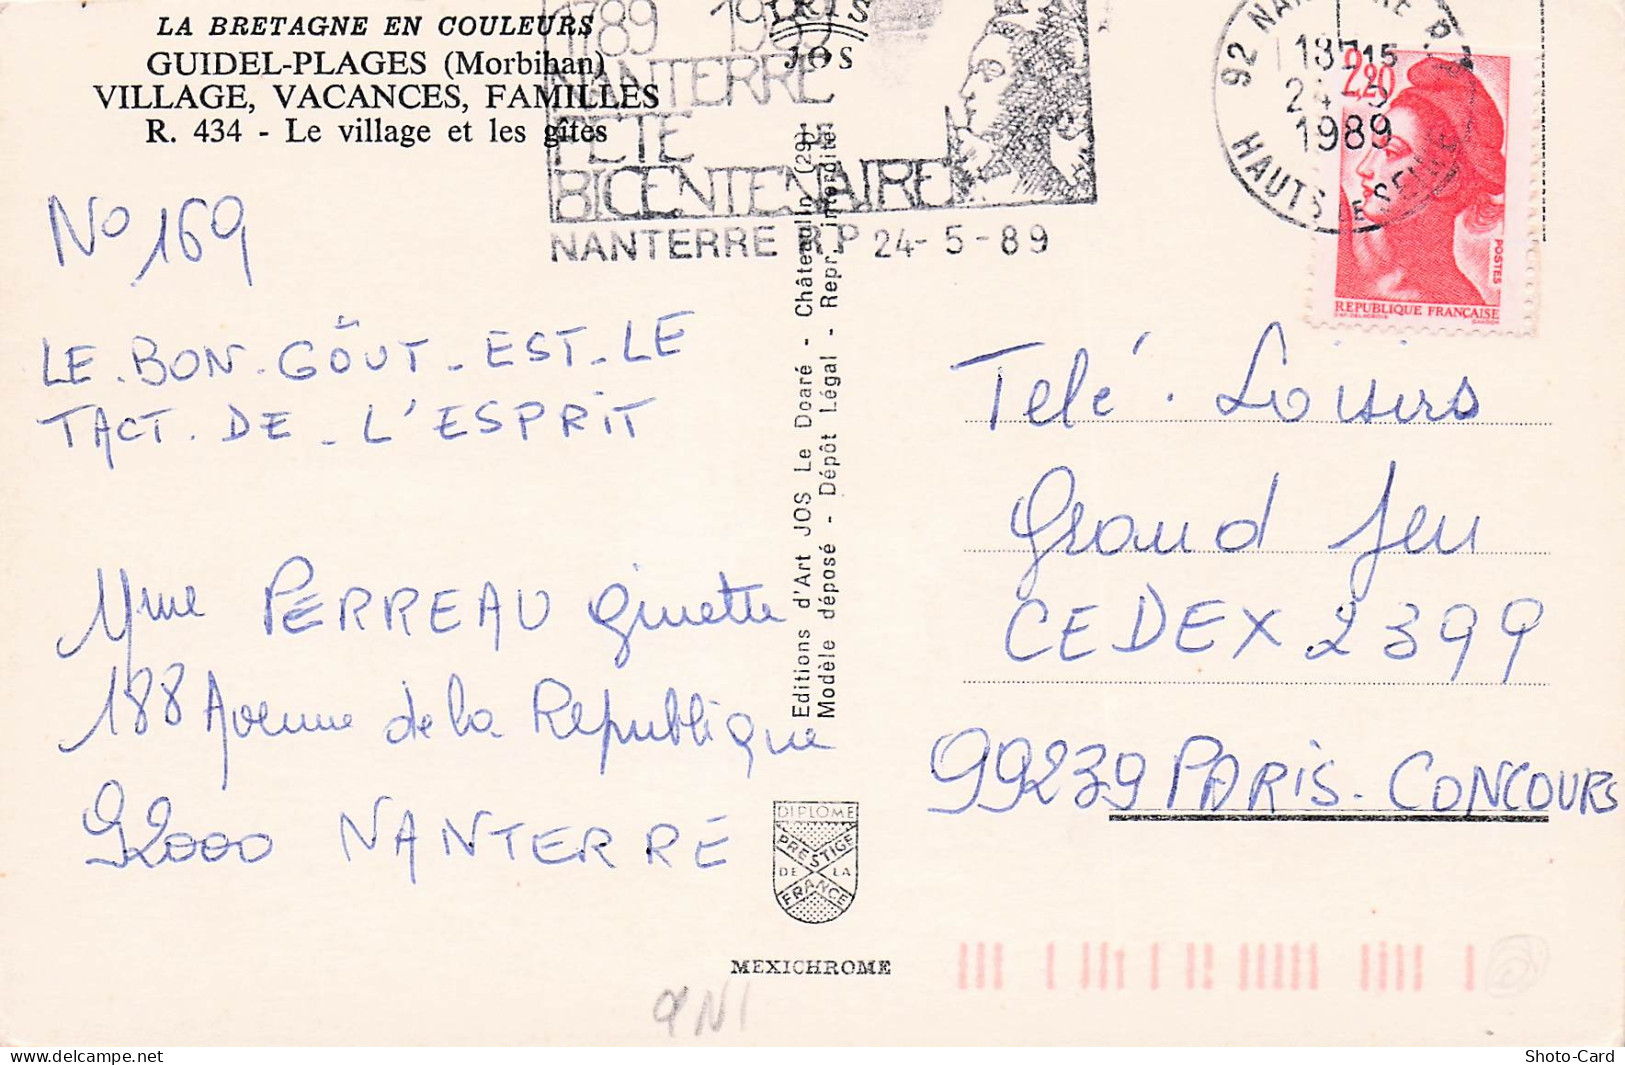 LA BRETAGNE EN COULEURS
GUIDEL-PLAGES (Morbihan)
VILLAGE, VACANCES, FAMILLES
R. 434 - Le village et les gîtes
1789 1989
NANTERRE
FETE
BICENTENAIRE
NANTERRE R.P 24-5-89
IRIS
JOS
92 NANTERRE R.P.
18H15
24-5
1989
HAUTS DE SEINE
2,20
POSTES
REPUBLIQUE FRANCAISE
No 169
LE.BON.GOÛT.EST.LE
TACT.DE.L'ESPRIT
Mme PERREAU Ginette
188 Avenue de la Republique
92000 NANTERRE
Editions d'Art JOS Le Doaré - Châteaulin (29)
Modèle déposé - Dépôt Légal - Repr. interdite
Telé.Loisirs
Grand Jeu
CEDEX 2399
99239 PARIS.CONCOURS
DIPLOME
PRESTIGE
DE LA
FRANCE
MEXICHROME
9N1
delcampe.net
Shoto-Card